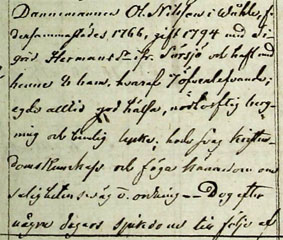 Dannemannen Ol. Nilsson i Wåhle, f.
densammastädes 1766, gift 1794 med Si-
grid Hermansdr ifr. Sörsjö och haft med
henne barn, hvaraf 7 öfverlefvande;
egde alltid god hälsa, nödtorftig berg-
ning och lycka; hade svag Kristen-
doms Kunskap och föga om
salighetens väg o. ordning — Dog efter
några dagars sjukdom till följe af